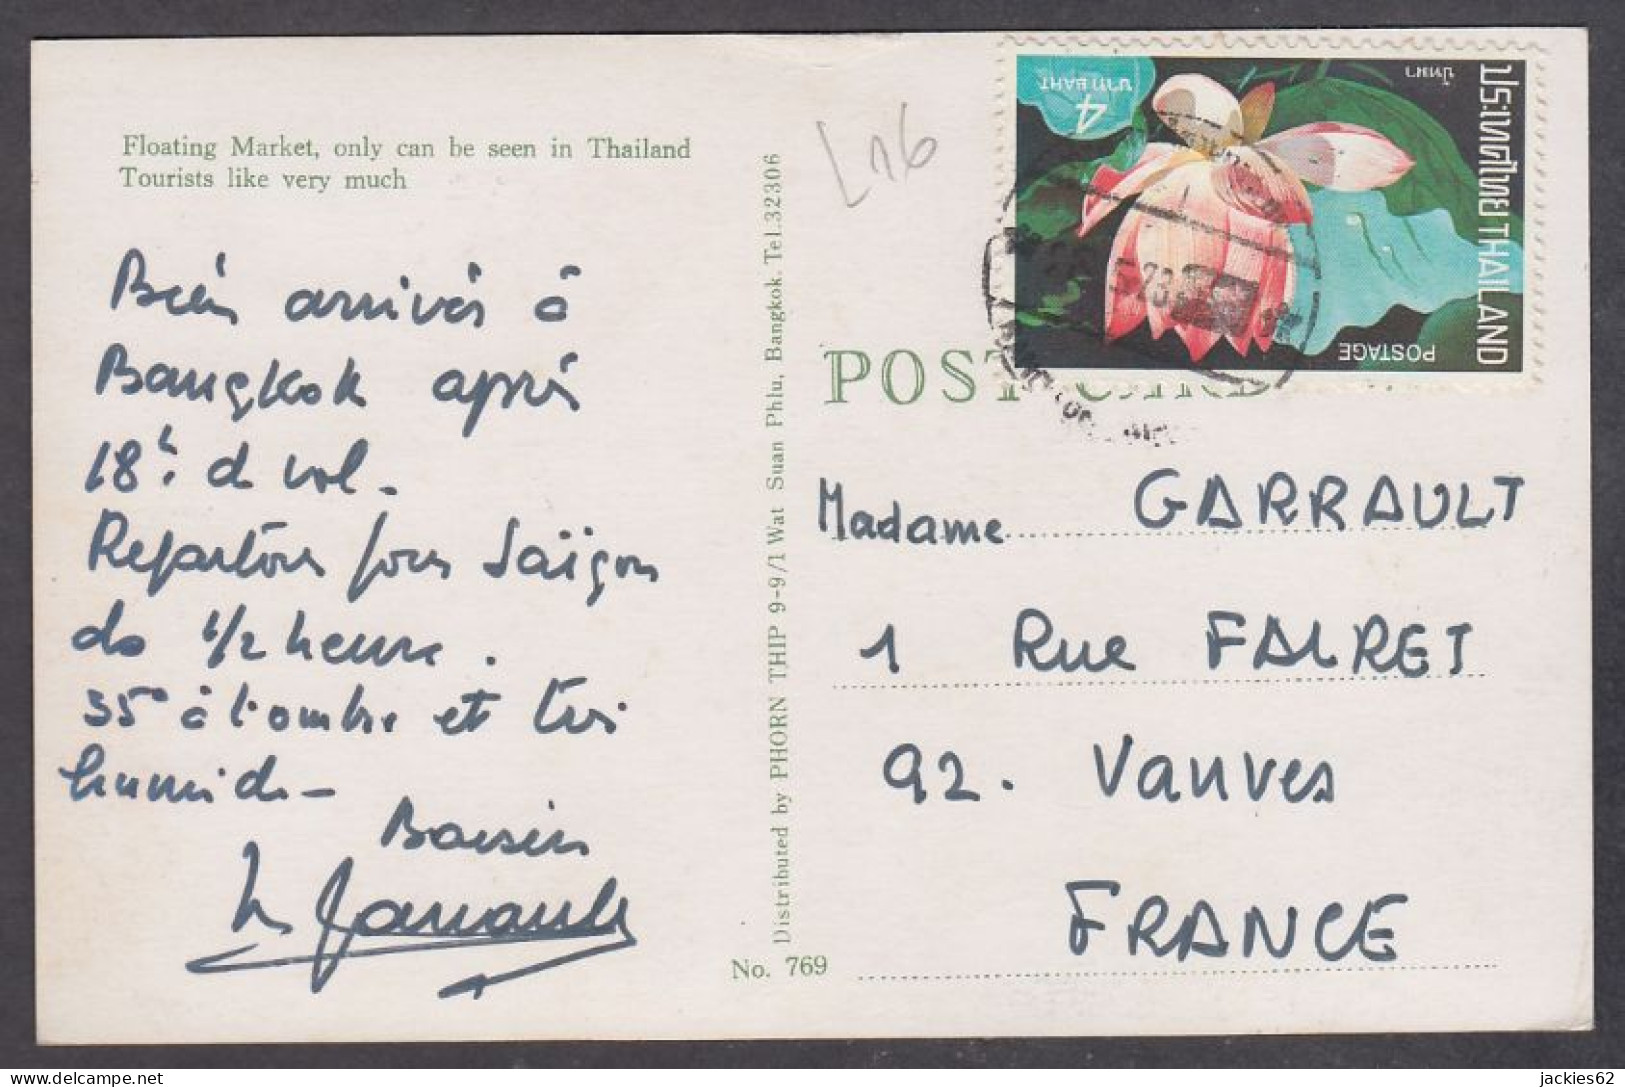 Floating Market, only can be seen in Thailand
Tourists like very much
Bien arrivés à
Bangkok après
18h. de vol.
Repartons pour Saïgon
ds 1/2 heure.
35° à l'ombre et très
humide -
Baisers
Garrault
Distributed by PHORN THIP 9-9/1 Wat Suan Phlu, Bangkok. Tel. 32306
No. 769
L16
4
บาท BAHT
บัวหลวง
ประเทศไทย THAILAND
POSTAGE
POST CARD
Madame GARRAULT
1 Rue FALRET
92. Vanves
FRANCE
delcampe.net
jackies62